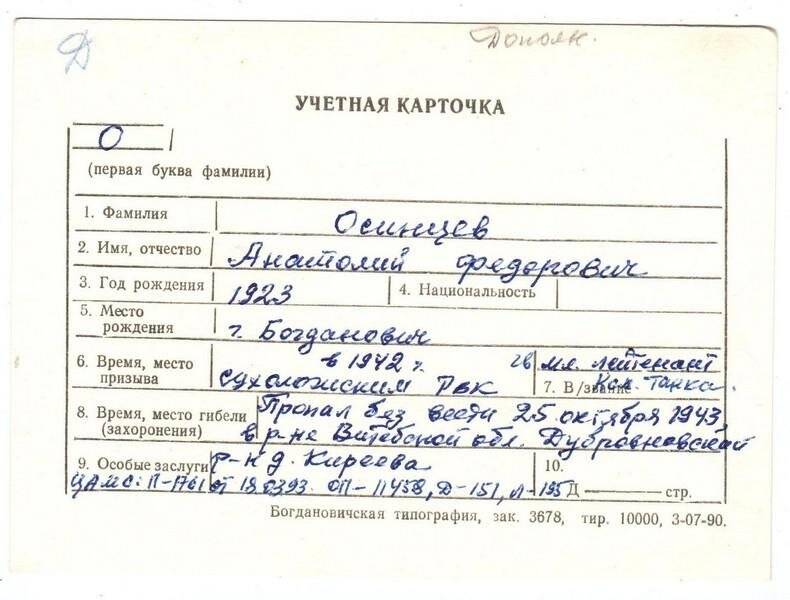 Д
Дополн.
УЧЕТНАЯ КАРТОЧКА
О
(первая буква фамилии)
1. Фамилия Осинцев
2. Имя, отчество Анатолий Федорович
3. Год рождения 1923 4. Национальность
5. Место рождения г. Богданович
6. Время, место призыва в 1942 г. Сухоложским РВК
7. В/звание гв мл. лейтенант Ком. танка.
8. Время, место гибели (захоронения) Пропал без вести 25 октября 1943,
в р-не Витебской обл. Дубровновский
р-н д. Киреева
9. Особые заслуги
10.
ЦАМС: П-1761 от 18.03.93. ОП-11458, Д-151, Л-195
Д ——— стр.
Богдановичская типография, зак. 3678, тир. 10000, 3-07-90.